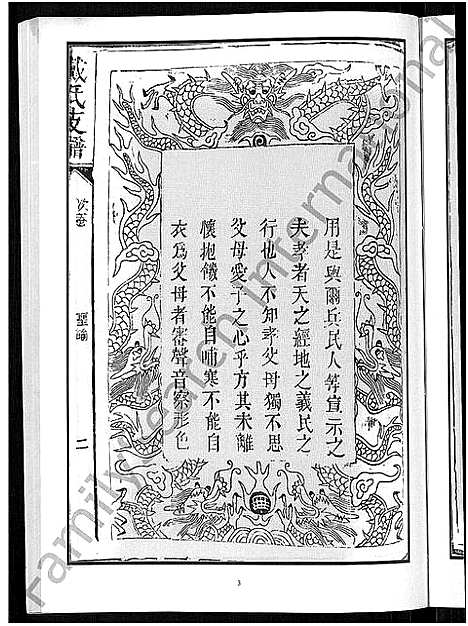 用是與爾兵民人等宣示之
夫孝者天之經地之義民之
行也人不知孝父母獨不思
父母愛子之心乎方其未離
懷抱饑不能自哺寒不能自
衣爲父母者審聲音察形色
戴氏支譜
聖諭
二
3
Family Gaten International